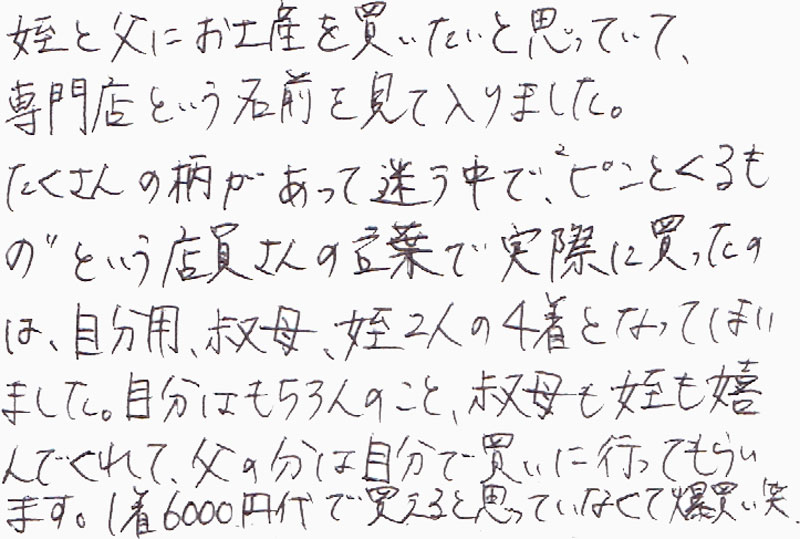 姪と父にお土産を買いたいと思っていて、
専門店という名前を見て入りました。
たくさんの柄があって迷う中で、"ピンとくるも
の"という店員さんの言葉で実際に買ったの
は、自分用、叔母、姪2人の4着となってしまい
ました。自分はもちろんのこと、叔母も姪も嬉
んでくれて、父の分は自分で買いに行ってもらい
ます。1着6000円代で買えると思っていなくて爆買い笑.